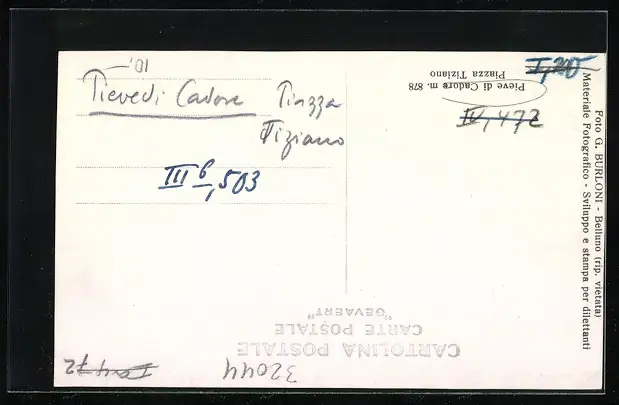 Pieve di Cadore Piazza
Tiziano
III b/,503
IV,472
Pieve di Cadore m. 878
Piazza Tiziano
Foto G. BURLONI - Belluno (rip. vietata)
Materiale Fotografico - Sviluppo e stampa per dilettanti
CARTOLINA POSTALE
CARTE POSTALE
"GEVAERT"
32044